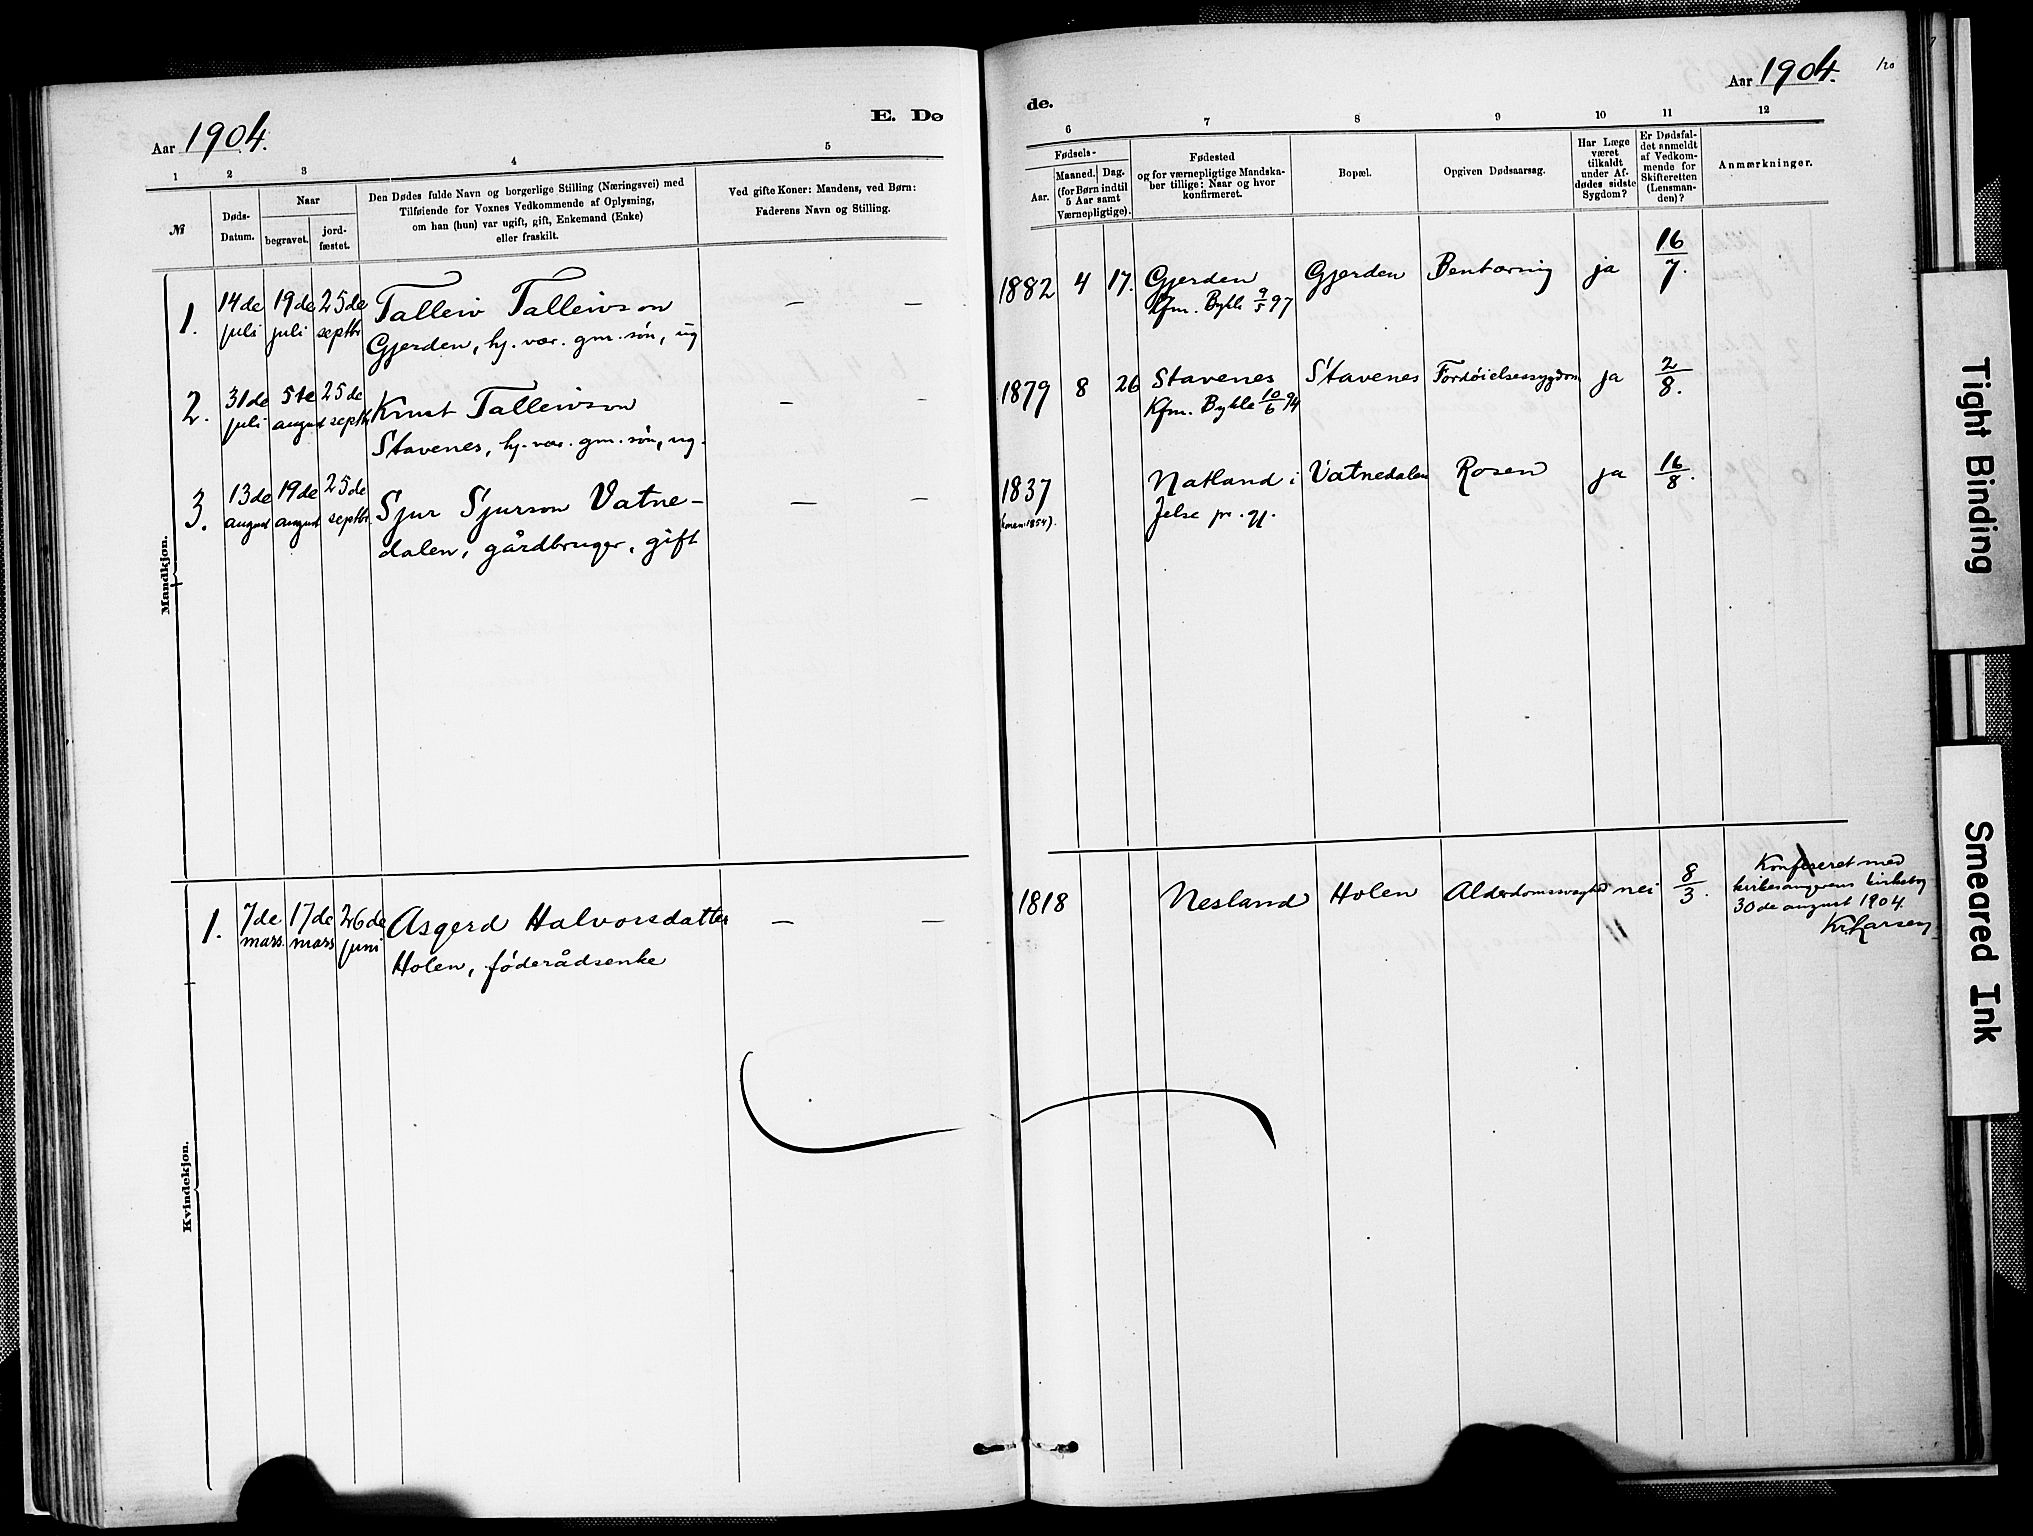 Aar 1904.
E. Dø
1 2 3 4 5
№
Døds-
Datum.
Naar
begravet.
jord-
fæstet.
Den Dødes fulde Navn og borgerlige Stilling (Næringsvei) med
Tilføiende for Voxnes Vedkommende af Oplysning,
om han (hun) var ugift, gift, Enkemand (Enke)
eller fraskilt.
Ved gifte Koner: Mandens, ved Børn:
Faderens Navn og Stilling.
Mandkjøn.
1. 14de juli 19de juli 25de septbr. Talleiv Talleivson — —
Gjerden, hj. vær. gm. søn, ug
2. 31de juli 5te august 25de septbr. Knut Talleivson — —
Stavenes, hj. vær. gm. søn, ug.
3. 13de august 19de august 25de septbr. Sjur Sjurson Vatne- — —
dalen, gårdbruger, gift
Kvindekjøn.
1. 7de mars 17de mars 26de juni Asgerd Halvorsdatter — —
Holen, føderådsenke
de.
Aar 1904.
120
6 7 8 9 10 11 12
Fødsels-
Aar.
Maaned. Dag.
(for Børn indtil
5 Aar samt
Værnepligtige).
Fødested
og for værnepligtige Mandska-
ber tillige: Naar og hvor
konfirmeret.
Bopæl.
Opgiven Dødsaarsag.
Har Læge
været
tilkaldt
under Af-
dødes sidste
Sygdom?
Er Dødsfal-
det anmeldt
af Vedkom-
mende for
Skifteretten
(Lensman-
den)?
Anmærkninger.
1882 4 17. Gjerden Gjerden Bentæring ja 16/7.
Kfm. Bykle 9/5 97
1879 8 26 Stavenes Stavenes Fordøielsessygdom ja 2/8.
Kfm. Bykle 10/6 94
1837 Natland i Vatnedalen Rosen ja 16/8.
Jelse pr. gj.
1818 Nesland Holen Alderdomssvaghed nei 8/3.
Konfereret med
kirkesangerens kirkebog
30de august 1904.
Kr. Larsen
Tight Binding
Smeared Ink